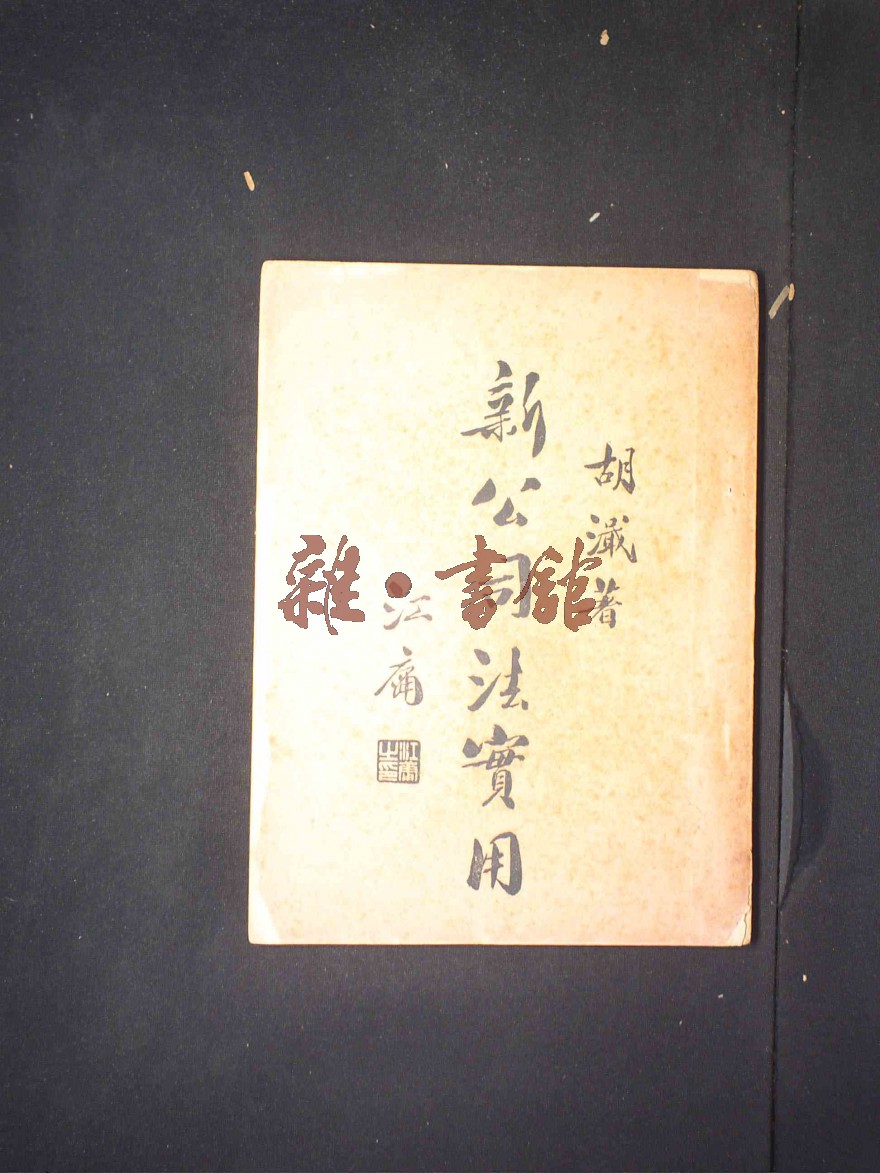 胡瀐著
新公司法實用
江庸
江庸之印
雜·書舘